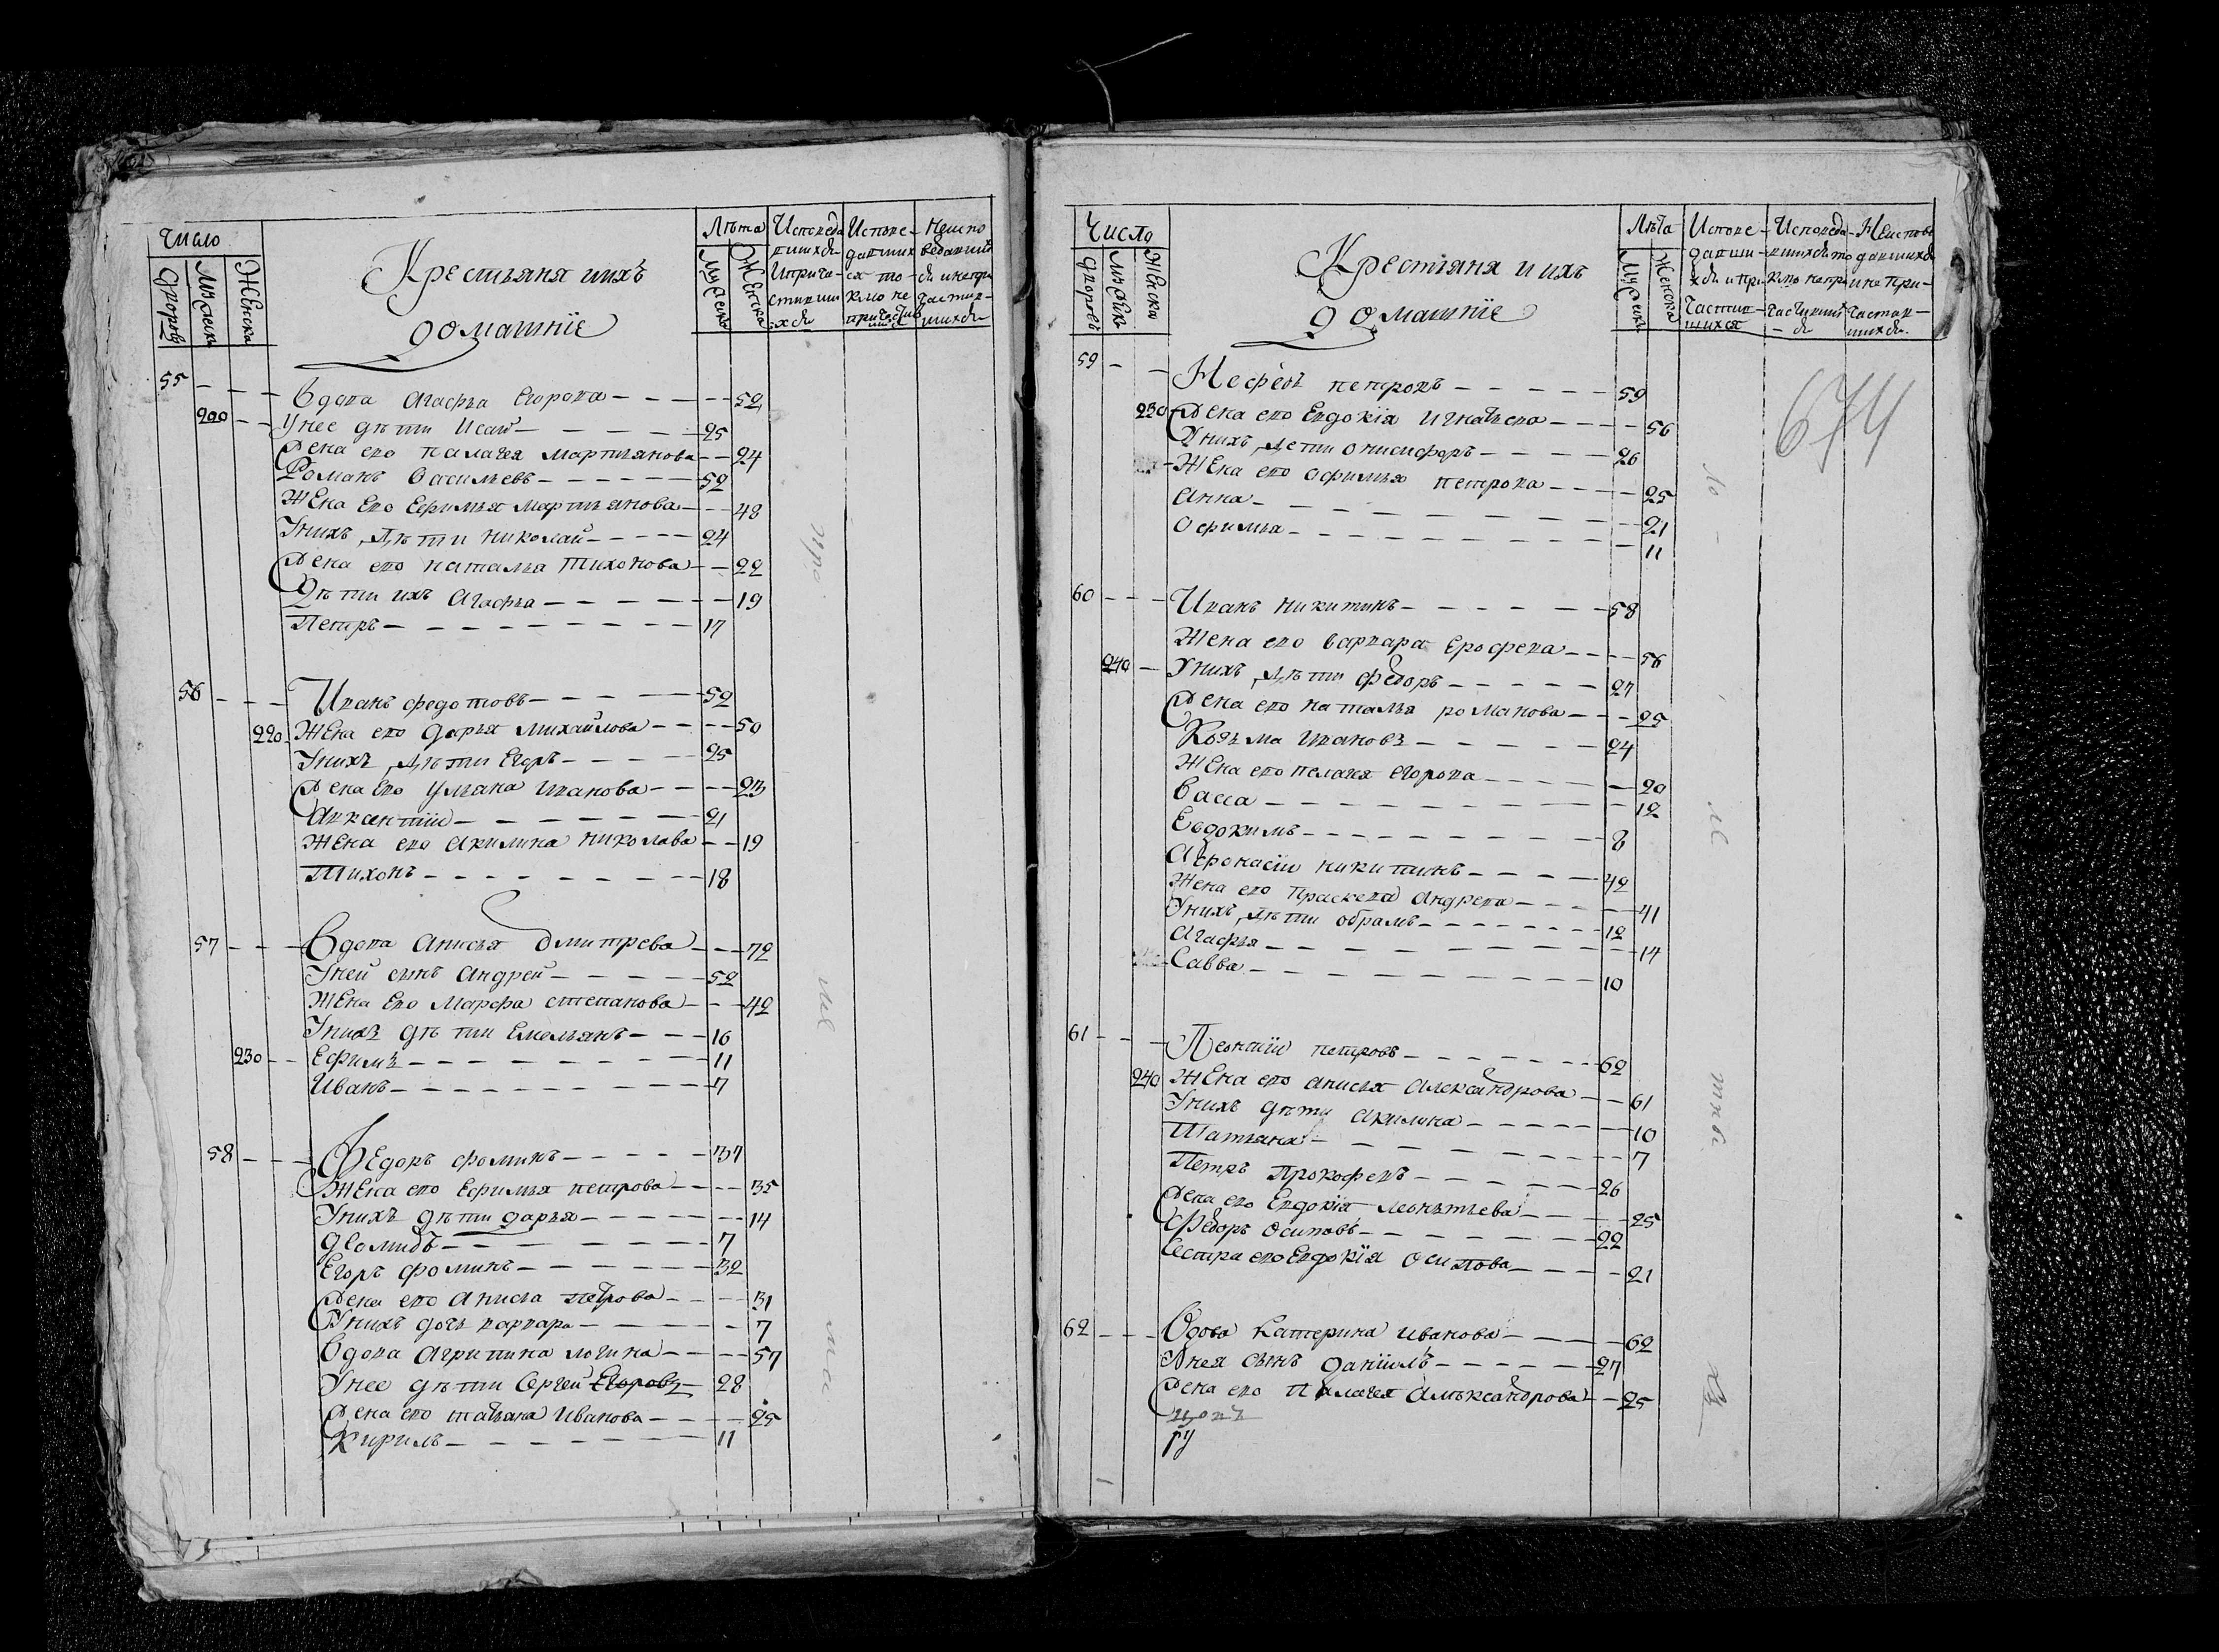 Число
Дворовъ
Мужска
Женска
Крестьяня и ихъ
домашнїе
Лѣта
Мужска
Женска
Исповеда
вшихся
и прича-
стивши
хся
Исповѣ-
давших
ся то-
кмо не
причастив
шихся
Неиспо
ведавших
ся и непри
частив-
шихся
55
Вдова Агафья Егорова 52
200 Унее дѣти Исай 25
Жена ево палагея Мартьянова 24
Романъ Васильевъ 52
Жена Ево Ефимья Мартьянова 48
Унихъ дѣти Николай 24
Жена ево наталья Тихонова 22
Дѣти ихъ Агафья 19
Петръ 17
56
Иванъ федотовъ 52
220 Жена ево Дарья Михайлова 50
Унихъ дѣти Егоръ 25
Жена Ево Ульяна Иванова 23
Авксентий 21
Жена ево Акилина Николава 19
Тихонъ 18
57
Вдова Анисья Дмитрева 72
Уней сынъ Андрей 52
Жена Ево Марфа степанова 42
Унихъ дѣти Емельянъ 16
230 Ефимъ 11
Иванъ 7
58
Федоръ фоминъ 37
Жена ево Ефимья петрова 35
Унихъ дѣти дарья 14
Деомидъ 7
Егоръ фоминъ 32
Жена ево Анисья петрова 31
Унихъ дочь варвара 7
Вдова Агрипина логина 57
Унее дѣти Сергей Егоровъ 28
Жена ево татьяна Иванова 25
Кирилъ 11
Число
Дворовъ
Мужска
Женска
Крестіяня и ихъ
домашнїе
Лѣта
Мужска
Женска
Испове-
давши-
хся и при-
частив-
шихся
Исповеда-
вшихся то
кмо непри
частивших
ся
Неиспове
давшихся
и не при-
частив-
шихся.
674
59
Нефедъ петровъ 59
230 Жена ево Евдокїя Игнатьева 56
Унихъ дети Онисифоръ 26
Жена ево Офимья петрова 25
Анна 21
Офимья 11
60
Иванъ никитинъ 58
Жена ево варвара Ерофева 56
240 Унихъ дѣти Федоръ 27
Жена ево наталья романова 25
Козьма Ивановъ 24
Жена ево пелагея егорова 20
Васса 12
Евдокимъ 8
Афонасiи никитинъ 42
Жена ево Прасковя Андрева 41
Унихъ дѣти обрамъ 12
Агафья 14
Савва 10
61
Леонтии петровъ 62
240 Жена ево анисья Александрова 61
Унихъ дѣти Акилина 10
Татьяна 7
Петръ Прокофевъ 26
Жена ево Евдокїя леонтьева 25
Федоръ осиповъ 22
Сестра ево Евдокїя осипова 21
62
Вдова Катерина иванова 62
Унея сынъ данiилъ 27
Жена ево Палагея Александрова 25